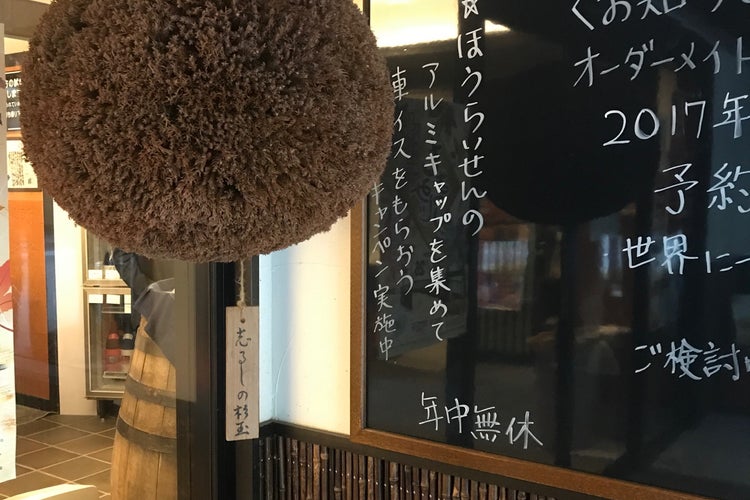 くお知ら
オーダーメイト
2017年
予約
世界に一
ご検討
☆ほうらいせんの
アルミキャップを集めて
車イスをもらおう
キャンペーン実施中
年中無休
志るしの杉玉